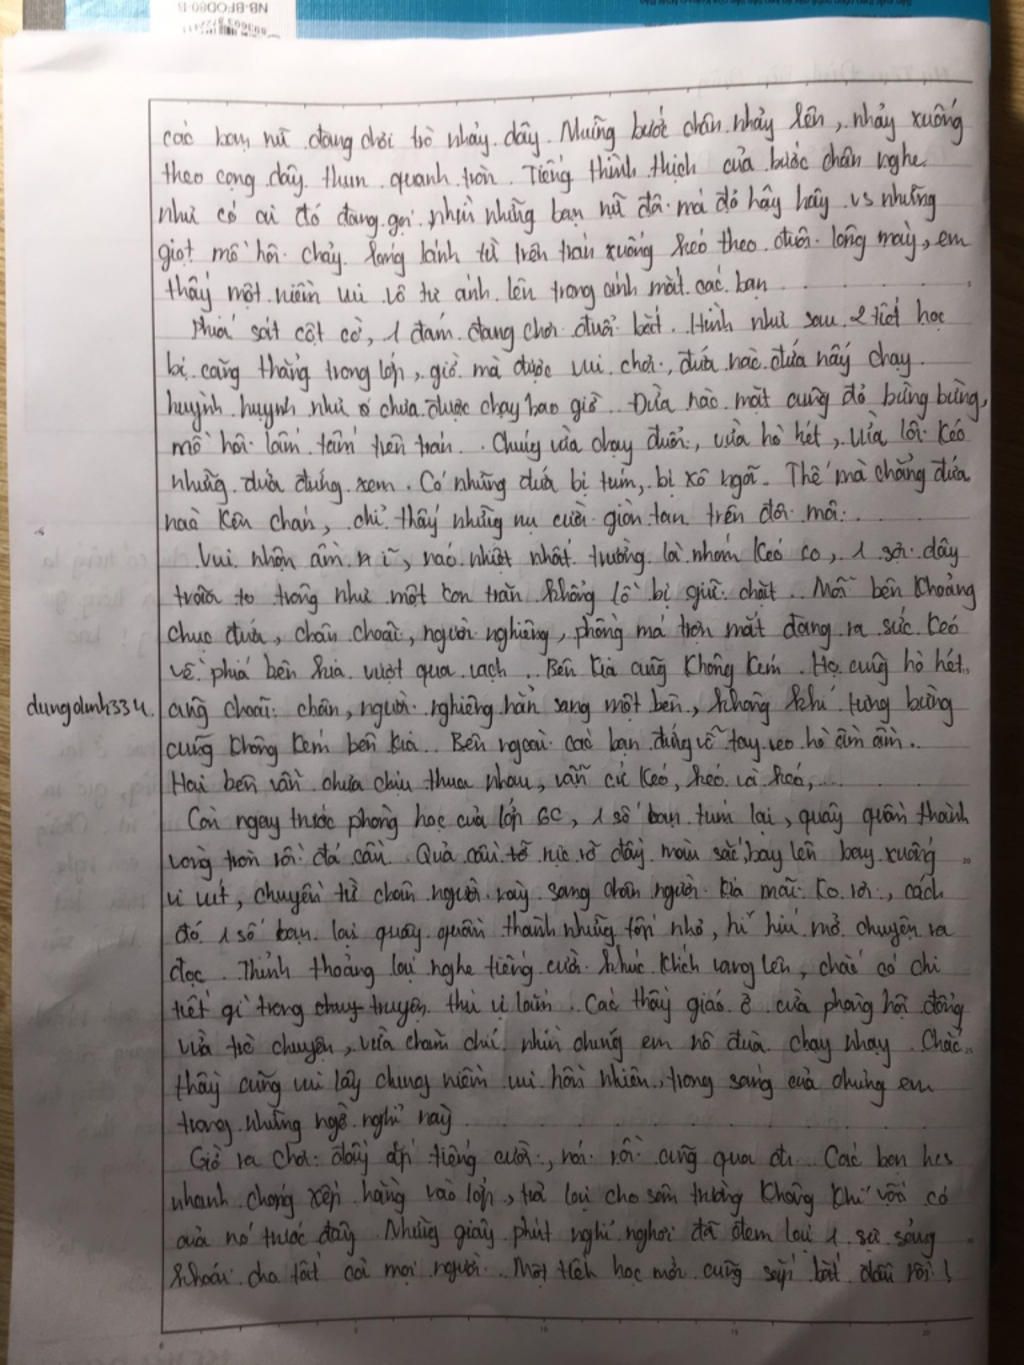 NB-BFOD80-B
các bạn nữ đang chơi trò nhảy dây. Những bước chân nhảy lên, nhảy xuống
theo cọng dây thun quanh tròn. Tiếng thình thịch của bước chân nghe
như có ai đó đang gọi, nhìn những bạn nữ đôi má đỏ hây hây vs những
giọt mồ hôi chảy long lanh từ trên trán xuống kéo theo đuôi lông mày, em
thấy một niềm vui vô tư ánh lên trong ánh mắt các bạn
Phía sát cột cờ, 1 đám đang chơi đuổi bắt. Hình như sau 2 tiết học
bị căng thẳng trong lớp, giờ mà được vui chơi, đứa nào đứa nấy chạy
huỳnh huỵnh như chưa được chạy bao giờ. Đứa nào mặt cũng đỏ bừng bừng,
mồ hôi lấm tấm trên trán. Chúng vừa chạy đuổi, vừa hò hét, vừa lôi kéo
những đứa đứng xem. Có những đứa bị túm, bị xô ngã. Thế mà chẳng đứa
nào kêu chán, chỉ thấy những nụ cười giòn tan trên đôi môi.
Vui nhộn ầm ĩ, náo nhiệt nhất trường là nhóm kéo co, 1 sợi dây
to trông như một con trăn khổng lồ bị giữ chặt. Mỗi bên khoảng
chục đứa, chân choãi, người nghiêng, phồng má trợn mắt đang ra sức kéo
về phía bên kia vượt qua vạch. Bên kia cũng không kém. Họ cũng hò hét,
dungdinh334. cũng choãi chân, người nghiêng hẳn sang một bên, không khí tưng bừng
cũng không kém bên kia. Bên ngoài các bạn đứng vỗ tay reo hò ầm ầm..
Hai bên vẫn chưa chịu thua nhau, vẫn cứ kéo, kéo và kéo,...
Còn ngay trước phòng học của lớp 6C, 1 số bạn túm lại, quây quần thành
vòng tròn rồi đá cầu. Quả cầu rực rỡ đầy màu sắc bay lên bay xuống
vi vút, chuyền từ chân người này sang chân người kia mãi ko rơi, cách
đó 1 số bạn lại quây quần thành những tốp nhỏ, hí húi mở chuyện ra
đọc. Thỉnh thoảng lại nghe tiếng cười khúc khích vang lên, chắc có chi
tiết gì trong truyện thú vị lắm. Các thầy giáo ở cửa phòng hội đồng
vừa trò chuyện, vừa chăm chú nhìn chúng em nô đùa chạy nhảy. Chắc
thầy cũng vui lây chung niềm vui hồn nhiên, trong sáng của chúng em
trong những ngờ nghỉ này
Giờ ra chơi đầy ắp tiếng cười, nói rồi cũng qua đi. Các bạn hcs
nhanh chóng xếp hàng vào lớp, trả lại cho sân trường không khí vốn có
của nó trước đây. Những giây phút nghỉ ngơi đã đem lại 1 sự sảng
khoái cho tất cả mọi người. Một tiết học mới cũng sắp bắt đầu rồi!